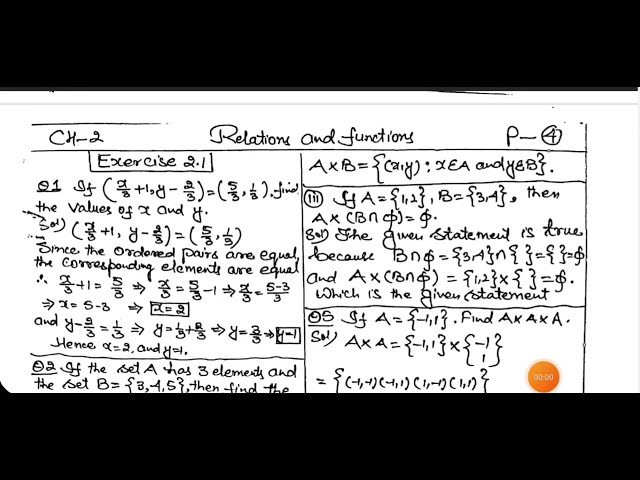 CH-2 Relations and functions P-④
Exercise 2.1
Q1 If (x/3+1, y-2/3)=(5/3, 1/3). find
the values of x and y.
Sol) (x/3+1, y-2/3)=(5/3, 1/3)
Since the ordered pairs are equal,
the corresponding elements are equal
∴ x/3+1=5/3 ⇒ x/3=5/3-1 ⇒ x/3=5-3/3
⇒ x=5-3 ⇒ x=2
and y-2/3=1/3 ⇒ y=1/3+2/3 ⇒ y=3/3 ⇒ y=1
Hence x=2, and y=1.
Q2 If the set A has 3 elements and
the set B={3,4,5}, then find the
A×B={(x,y): x∈A and y∈B}.
(iii) If A={1,2}, B={3,4}, then
A×(B∩ϕ)=ϕ.
Sol) The given statement is true
because B∩ϕ={3,4}∩{ }={ }=ϕ
and A×(B∩ϕ)={1,2}×{ }=ϕ.
Which is the given statement
Q5 If A={-1,1}. Find A×A×A.
Sol) A×A={-1,1}×{-1 1}
={(-1,-1)(-1,1)(1,-1)(1,1)}
00:00